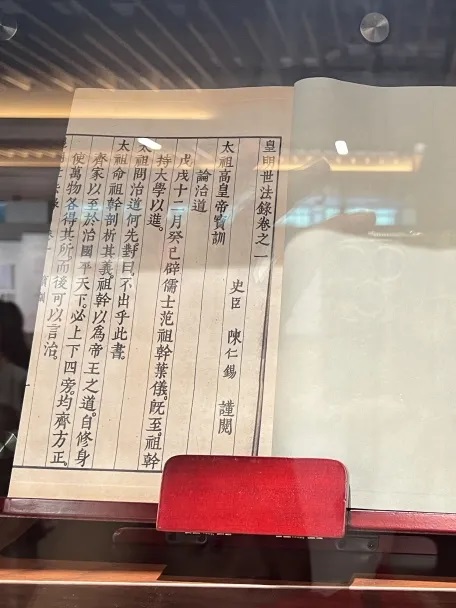 皇明世法錄卷之一
史臣 陳仁錫 謹閱
太祖高皇帝寳訓
論治道
戊戌十二月癸巳辟儒士范祖幹葉儀。旣至。祖幹
持大學以進。
太祖問治道何先對曰。不出乎此書
太祖命祖幹剖析其義祖幹以爲帝王之道。自修身
齊家以至於治國平天下。必上下四旁。均齊方正。
使萬物各得其所。而後可以言治。